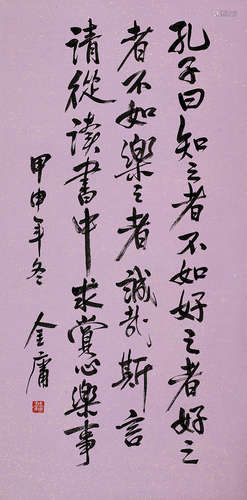 孔子曰知之者不如好之者好之
者不如樂之者誠哉斯言
請從讀書中求賞心樂事
甲申年冬
金庸